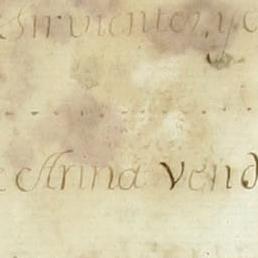 sirvientes, y
Anna vend